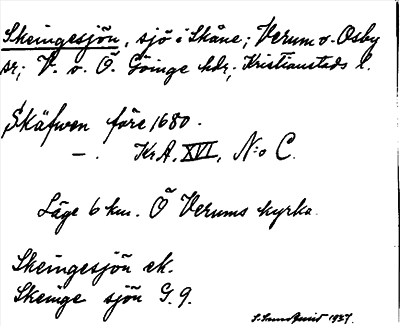 Skeingesjön, sjö i Skåne; Verum o. Osby
sr; V. o. Ö. Göinge hdr; Kristianstads l.
Skäfwen före 1680.
—. KrA, XVI, N:o C.
Läge 6 km. Ö Verums kyrka.
Skeingesjön ek.
Skeinge sjön G. 9.
1937.